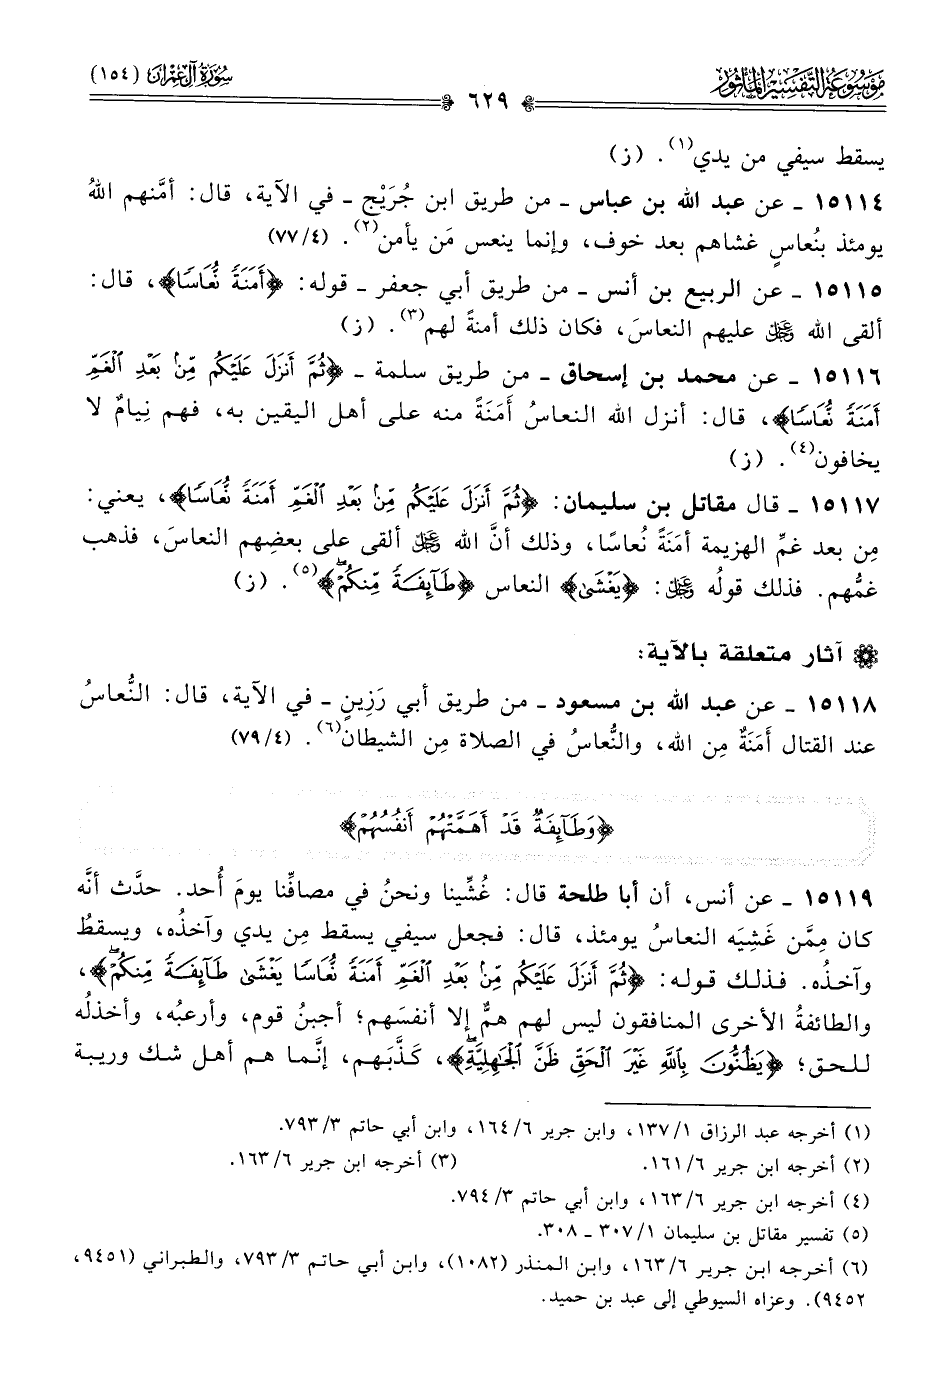 مَوْسُوعَة التَّفْسِيرِ المَأْثُور
سُورَةُ آلِ عِمْرَان (١٥٤)
٦٢٩
يسقط سيفي من يدي(١). (ز)
١٥١١٤ ـ عن عبد الله بن عباس ـ من طريق ابن جُرَيْج ـ في الآية، قال: أمَّنهم اللهُ
يومئذ بنُعاسٍ غشاهم بعد خوف، وإنما ينعس مَن يأمن(٢). (٧٧/٤)
١٥١١٥ ـ عن الربيع بن أنس ـ من طريق أبي جعفر ـ قوله: ﴿أَمَنَةً نُّعَاسًا﴾، قال:
ألقى الله ﷻ عليهم النعاسَ، فكان ذلك أمنةً لهم(٣). (ز)
١٥١١٦ ـ عن محمد بن إسحاق ـ من طريق سلمة ـ ﴿ثُمَّ أَنزَلَ عَلَيْكُم مِّنۢ بَعْدِ ٱلْغَمِّ
أَمَنَةً نُّعَاسًا﴾، قال: أنزل الله النعاسُ أَمَنَةً منه على أهل اليقين به، فهم نِيامٌ لا
يخافون(٤). (ز)
١٥١١٧ ـ قال مقاتل بن سليمان: ﴿ثُمَّ أَنزَلَ عَلَيْكُم مِّنۢ بَعْدِ ٱلْغَمِّ أَمَنَةً نُّعَاسًا﴾، يعني:
مِن بعد غمِّ الهزيمة أمنَةً نُعاسًا، وذلك أنَّ الله ﷻ ألقى على بعضِهم النعاسَ، فذهب
غمُّهم. فذلك قولُه ﷻ: ﴿يَغْشَىٰ﴾ النعاس ﴿طَآئِفَةً مِّنكُمْ﴾(٥). (ز)
آثار متعلقة بالآية:
١٥١١٨ ـ عن عبد الله بن مسعود ـ من طريق أبي رَزِينٍ ـ في الآية، قال: النُّعاسُ
عند القتال أَمَنَةٌ مِن الله، والنُّعاسُ في الصلاة مِن الشيطان(٦). (٧٩/٤)
﴿وَطَآئِفَةٌ قَدْ أَهَمَّتْهُمْ أَنفُسُهُمْ﴾
١٥١١٩ ـ عن أنس، أن أبا طلحة قال: غُشِّينا ونحنُ في مصافِّنا يومَ أُحد. حدَّث أنَّه
كان مِمَّن غَشِيَه النعاسُ يومئذ، قال: فجعل سيفي يسقط مِن يدي وآخذُه، ويسقطُ
وآخذُه. فذلك قوله: ﴿ثُمَّ أَنزَلَ عَلَيْكُم مِّنۢ بَعْدِ ٱلْغَمِّ أَمَنَةً نُّعَاسًا يَغْشَىٰ طَآئِفَةً مِّنكُمْ﴾،
والطائفةُ الأخرى المنافقون ليس لهم همٌّ إلا أنفسَهم؛ أجبنُ قوم، وأرعبُه، وأخذلُه
للحق؛ ﴿يَظُنُّونَ بِٱللَّهِ غَيْرَ ٱلْحَقِّ ظَنَّ ٱلْجَٰهِلِيَّةِ﴾، كَذَّبَهم، إنَّما هم أهل شك وريبة
(١) أخرجه عبد الرزاق ١٣٧/١، وابن جرير ١٦٤/٦، وابن أبي حاتم ٧٩٣/٣.
(٢) أخرجه ابن جرير ١٦١/٦. (٣) أخرجه ابن جرير ١٦٣/٦.
(٤) أخرجه ابن جرير ١٦٣/٦، وابن أبي حاتم ٧٩٤/٣.
(٥) تفسير مقاتل بن سليمان ٣٠٧/١ ـ ٣٠٨.
(٦) أخرجه ابن جرير ١٦٣/٦، وابن المنذر (١٠٨٢)، وابن أبي حاتم ٧٩٣/٣، والطبراني (٩٤٥١،
٩٤٥٢). وعزاه السيوطي إلى عبد بن حميد.